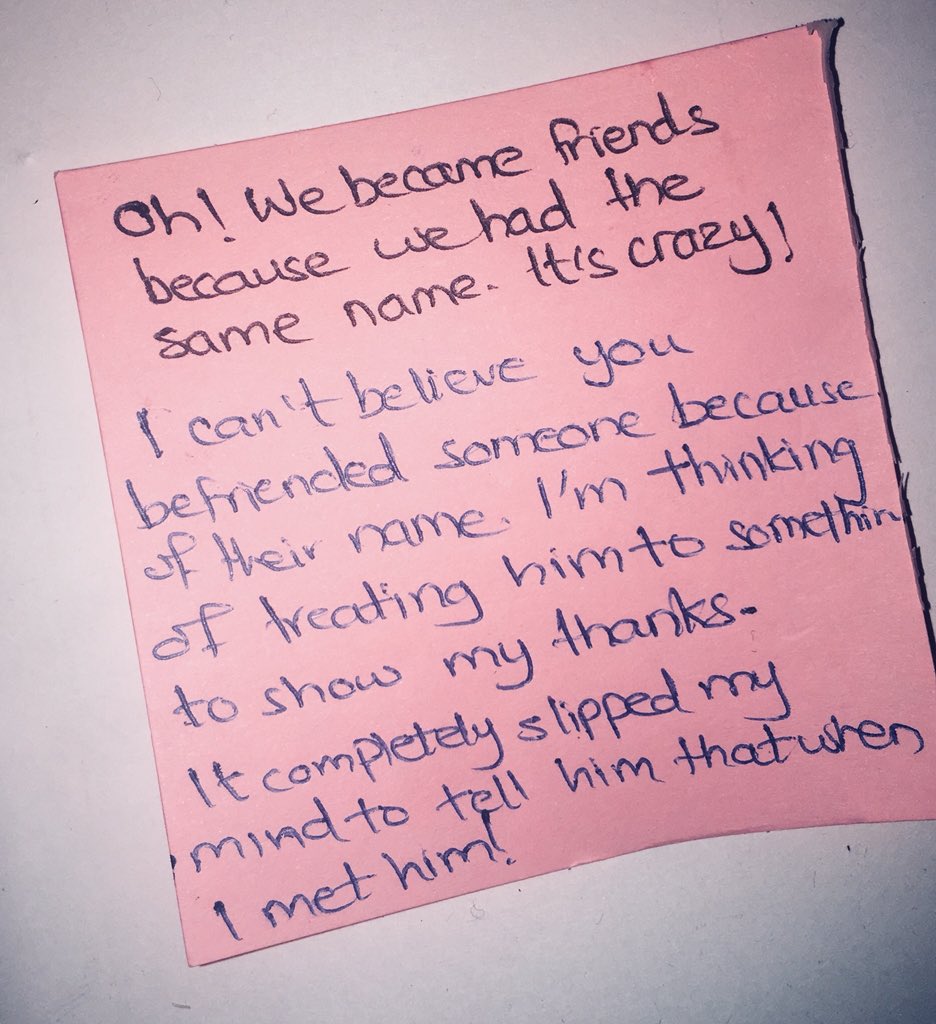 Oh! We became friends
because we had the
same name. It's crazy!
I can't believe you
befriended someone because
of their name. I'm thinking
of treating him to somethin
to show my thanks.
It completely slipped my
mind to tell him that when
I met him!